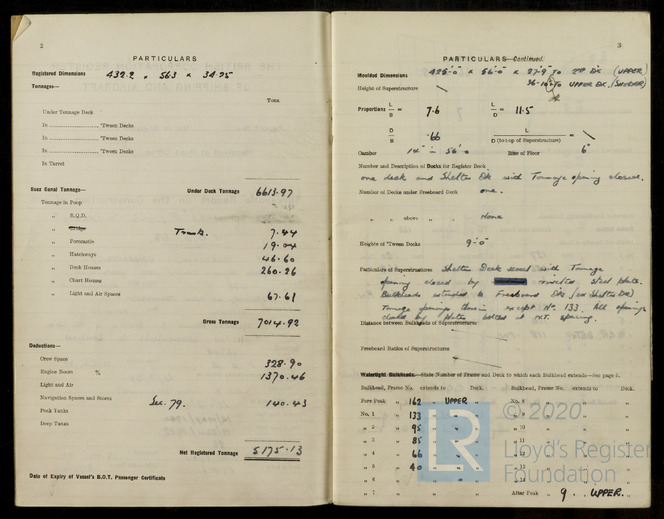 2
PARTICULARS
Registered Dimensions 432.2 x 56.3 x 34.25
Tonnages—
Tons.
Under Tonnage Deck
In 'Tween Decks
In 'Tween Decks
In 'Tween Decks
In Turret
Suez Canal Tonnage— Under Deck Tonnage 6613.97
Tonnage in Poop
„ R.Q.D.
„ Bridge Trunk. 7.44
„ Forecastle 19.04
„ Hatchways 46.60
„ Deck Houses 260.26
„ Chart Houses
„ Light and Air Spaces 67.61
Gross Tonnage 7014.92
Deductions—
Crew Space 328.90
Engine Room % 1370.46
Light and Air
Navigation Spaces and Stores Sec. 79. 140.43
Peak Tanks
Deep Tanks
Net Registered Tonnage 5175.13
Date of Expiry of Vessel's B.O.T. Passenger Certificate
3
PARTICULARS—Continued.
Moulded Dimensions 425'-0" x 56'-0" x 27'-9" to 2nd Dk (UPPER)
to UPPER DK. (SHELTER)
Height of Superstructure
Proportions L/B = 7.6 L/D = 11.5
B/D = .66 L/D (to top of Superstructure) =
Camber 14" in 56'0 Rise of Floor 6"
Number and Description of Decks for Register Book
one deck and Shelter Dk with Tonnage opening closed.
Number of Decks under Freeboard Deck one.
„ „ above „ „ None
Heights of 'Tween Decks 9'-0"
Particulars of Superstructures Shelter Deck with Tonnage
opening closed by riveted steel plate.
Bulkheads extended to Freeboard Dk (ex Shelter Dk)
Tonnage openings therein except No. 133. All openings
closed by plates bolted at M.T. opening.
Distance between Bulkheads of Superstructures
Freeboard Ratios of Superstructures
Watertight Bulkheads—State Number of Frame and Deck to which each Bulkhead extends—See page 5.
Bulkhead, Frame No. extends to Deck. Bulkhead, Frame No. extends to Deck.
Fore Peak „ 162 „ UPPER „ No. 8 „ „
No. 1 „ 133 „ „ „ 9
„ 2 „ 95 „ „ „ 10
„ 3 „ 85 „ „ „ 11
„ 4 „ 66 „ „ „ 12
„ 5 „ 40 „ „ „ 13
„ 6 „ „ „ 14
„ 7 „ „ „ After Peak „ 9 „ UPPER. „
LR © 2020
Lloyd's Register
Foundation